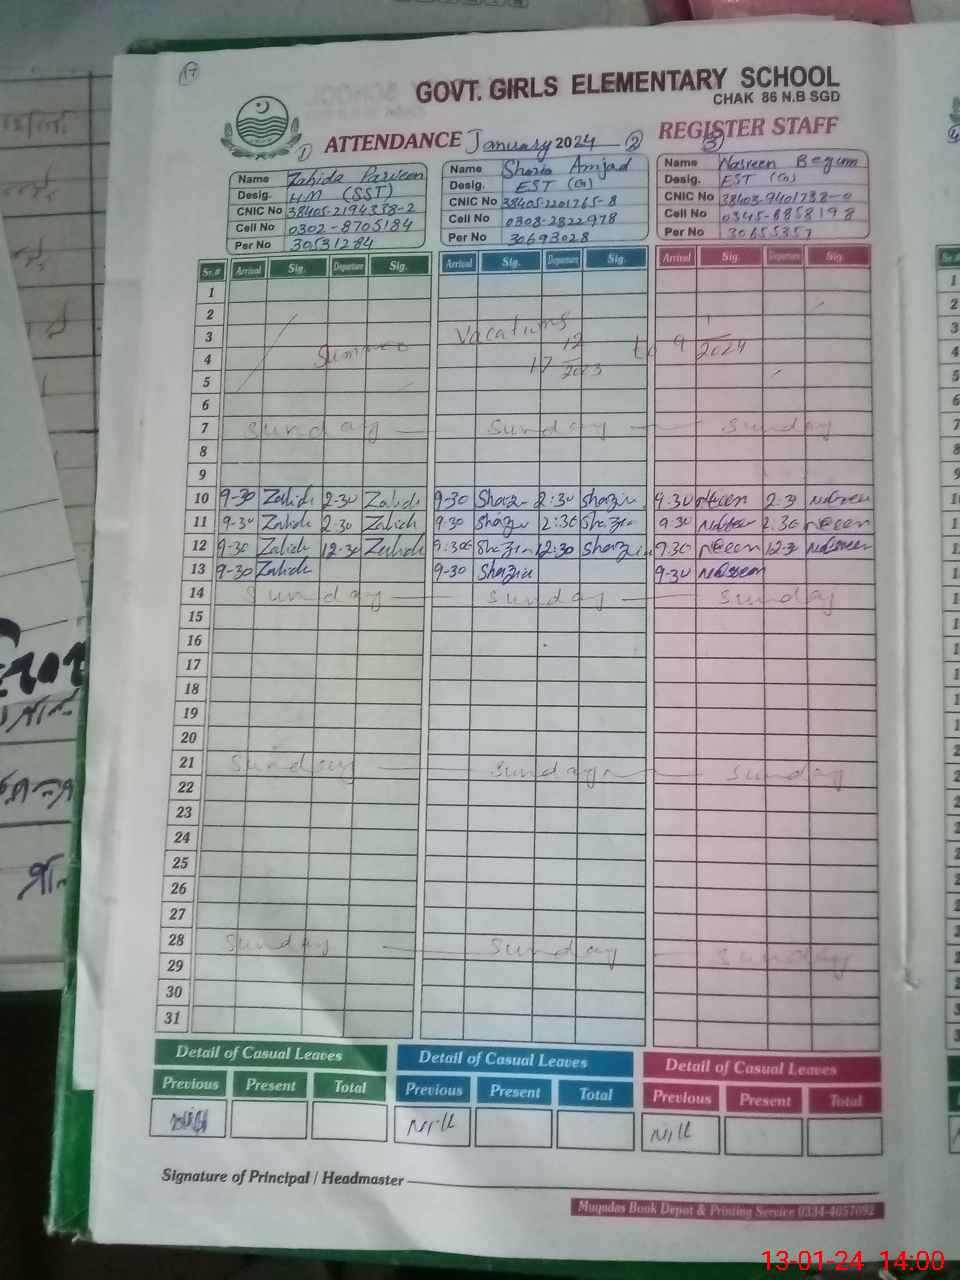 17
GOVT. GIRLS ELEMENTARY SCHOOL
CHAK 86 N.B SGD
ATTENDANCE January 2024 REGISTER STAFF
1 2 3
Name Zahida Parveen
Desig. HM (SST)
CNIC No 38405-2194338-2
Cell No 0302-8705184
Per No 30531284
Name Shazia Amjad
Desig. EST (G)
CNIC No 38405-1201765-8
Cell No 0303-2822978
Per No 30693028
Name Nasreen Begum
Desig. EST (G)
CNIC No 38403-9401738-0
Cell No 0345-8858198
Per No 30655357
Sr.# Arrival Sig. Departure Sig. Arrival Sig. Departure Sig. Arrival Sig. Departure Sig.
1
2
3 Vacations
4 Summer 17 12 2023 to 9 1 2024
5
6
7 Sunday Sunday Sunday
8
9
10 9-30 Zahida 2-30 Zahida 9-30 Shazia 2:30 Shazia 9.30 Nasreen 2:30 Nasreen
11 9-30 Zahida 2-30 Zahida 9.30 Shazia 2:30 Shazia 9.30 Nasreen 2.30 Nasreen
12 9-30 Zahida 12-30 Zahida 9:30 Shazia 12:30 Shazia 9.30 Nasreen 12-30 Nasreen
13 9-30 Zahida 9-30 Shazia 9-30 Nasreen
14 Sunday Sunday Sunday
15
16
17
18
19
20
21 Sunday Sunday Sunday
22
23
24
25
26
27
28 Sunday Sunday Sunday
29
30
31
Detail of Casual Leaves Detail of Casual Leaves Detail of Casual Leaves
Previous Present Total Previous Present Total Previous Present Total
Nill Nill
Signature of Principal / Headmaster
Muqadas Book Depot & Printing Service 0334-4057092
13-01-24 14:00